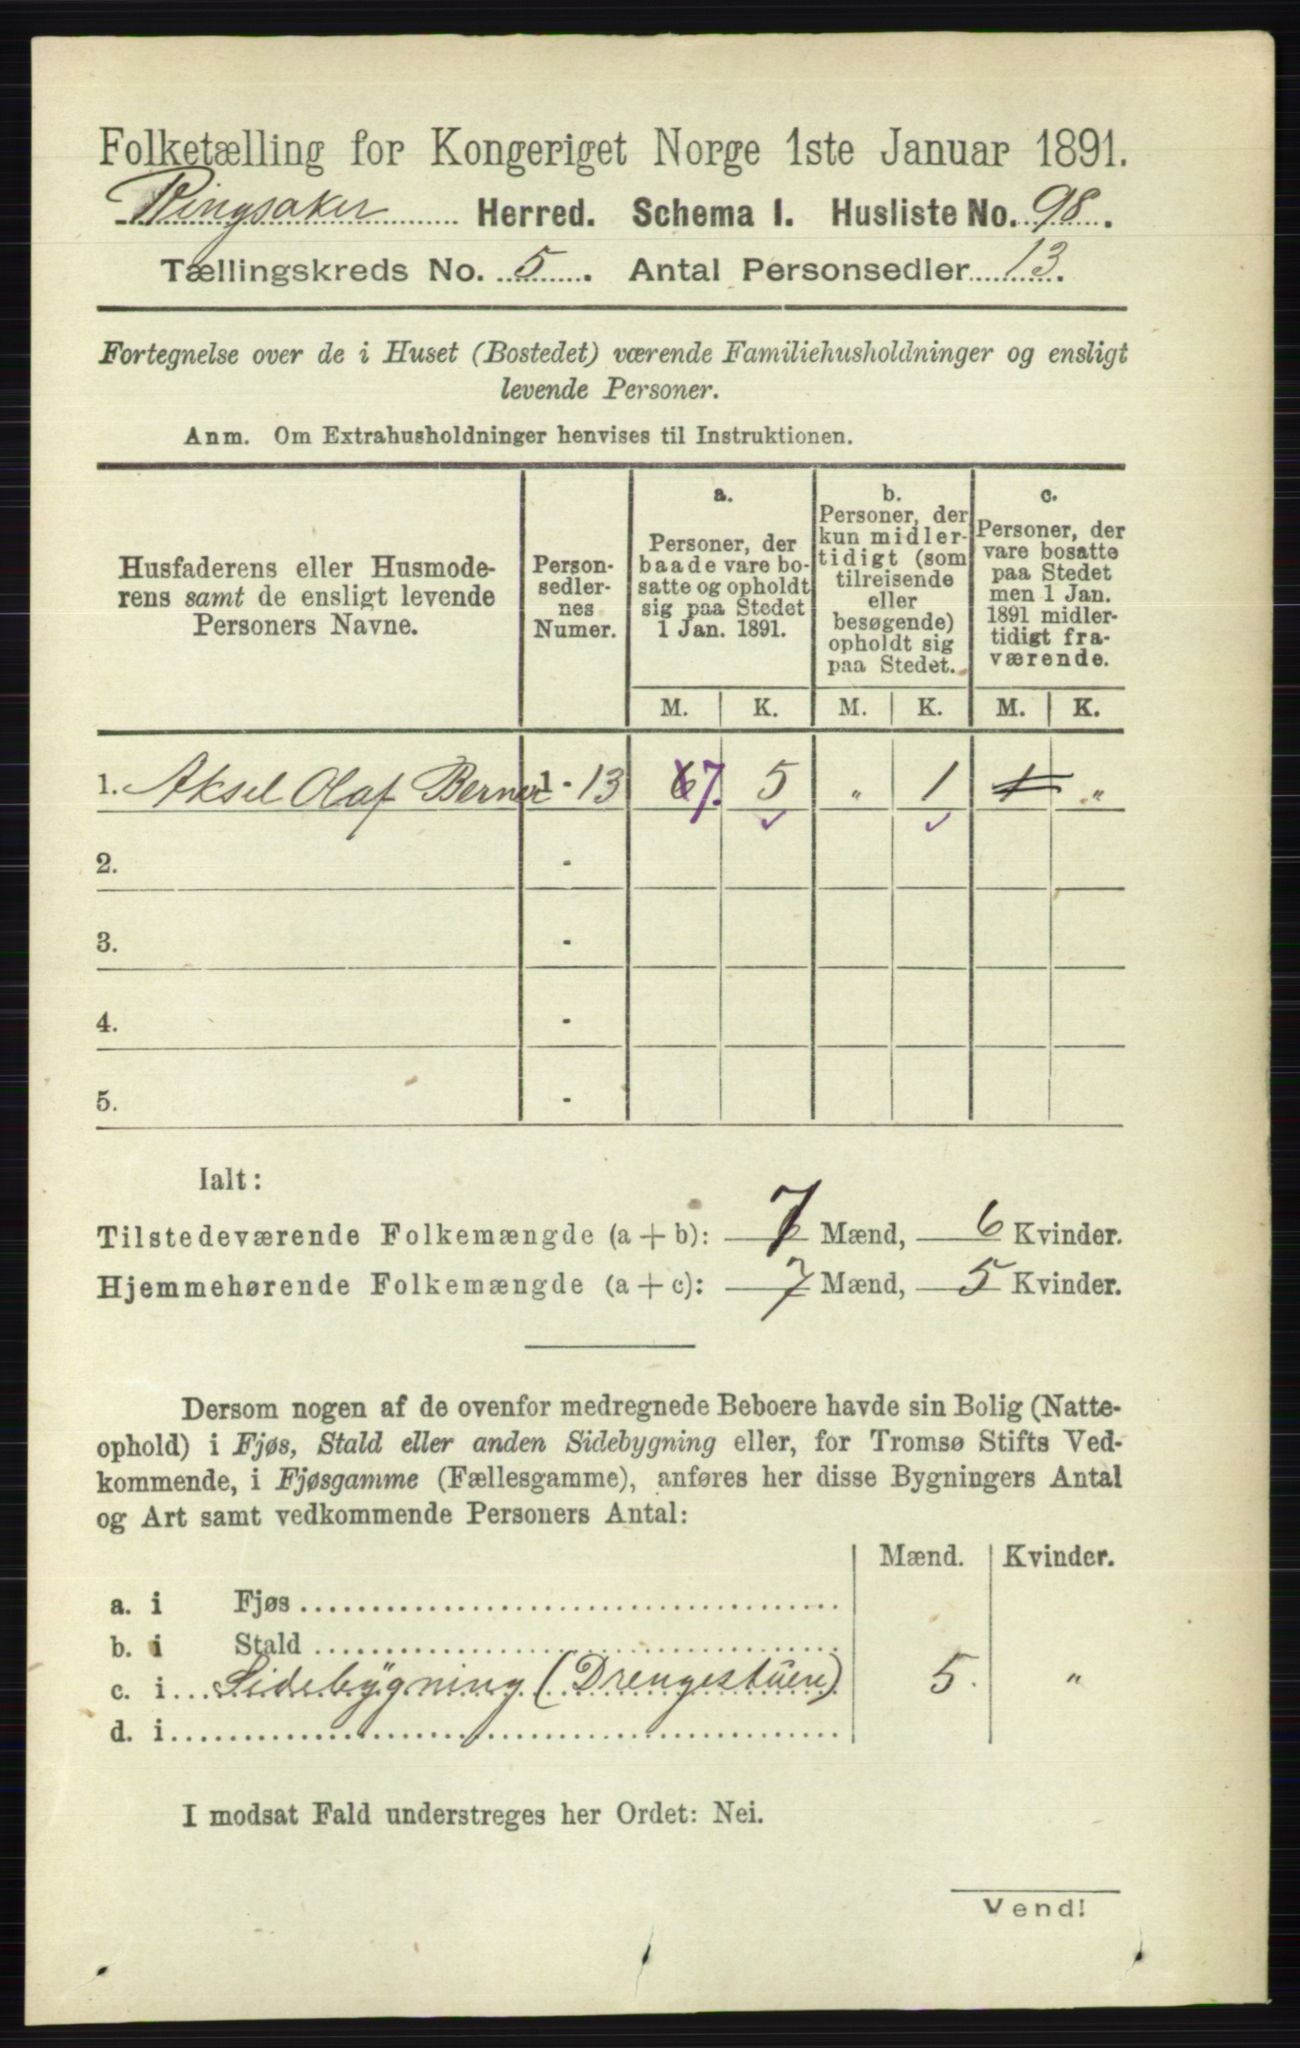 Folketælling for Kongeriget Norge 1ste Januar 1891.
Ringsaker Herred. Schema I. Husliste No. 98.
Tællingskreds No. 5. Antal Personsedler 13.
Fortegnelse over de i Huset (Bostedet) værende Familiehusholdninger og ensligt
levende Personer.
Anm. Om Extrahusholdninger henvises til Instruktionen.
Husfaderens eller Husmode-
rens samt de ensligt levende
Personers Navne.
Person-
sedler-
nes
Numer.
a.
Personer, der
baade vare bo-
satte og opholdt
sig paa Stedet
1 Jan. 1891.
b.
Personer, der
kun midler-
tidigt (som
tilreisende
eller
besøgende)
opholdt sig
paa Stedet.
c.
Personer, der
vare bosatte
paa Stedet
men 1 Jan.
1891 midler-
tidigt fra-
værende.
M. K. M. K. M. K.
1. Aksel Olaf Berner 1 - 13 6 7. 5 " 1 1 "
2. -
3. -
4. -
5. -
Ialt:
Tilstedeværende Folkemængde (a + b): 7 Mænd, 6 Kvinder.
Hjemmehørende Folkemængde (a + c): 7 Mænd, 5 Kvinder.
Dersom nogen af de ovenfor medregnede Beboere havde sin Bolig (Natte-
ophold) i Fjøs, Stald eller anden Sidebygning eller, for Tromsø Stifts Ved-
kommende, i Fjøsgamme (Fællesgamme), anføres her disse Bygningers Antal
og Art samt vedkommende Personers Antal:
Mænd. Kvinder.
a. i Fjøs
b. i Stald
c. i Sidebygning (Drengestuen) 5. "
d. i
I modsat Fald understreges her Ordet: Nei.
Vend!